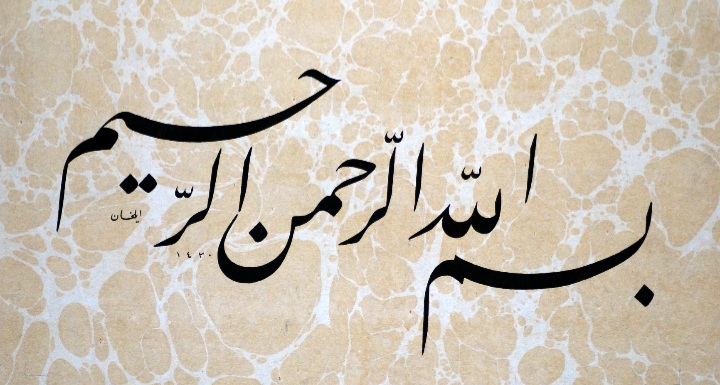 بسم الله الرحمن الرحيم
ایلخان
١٤٣٠